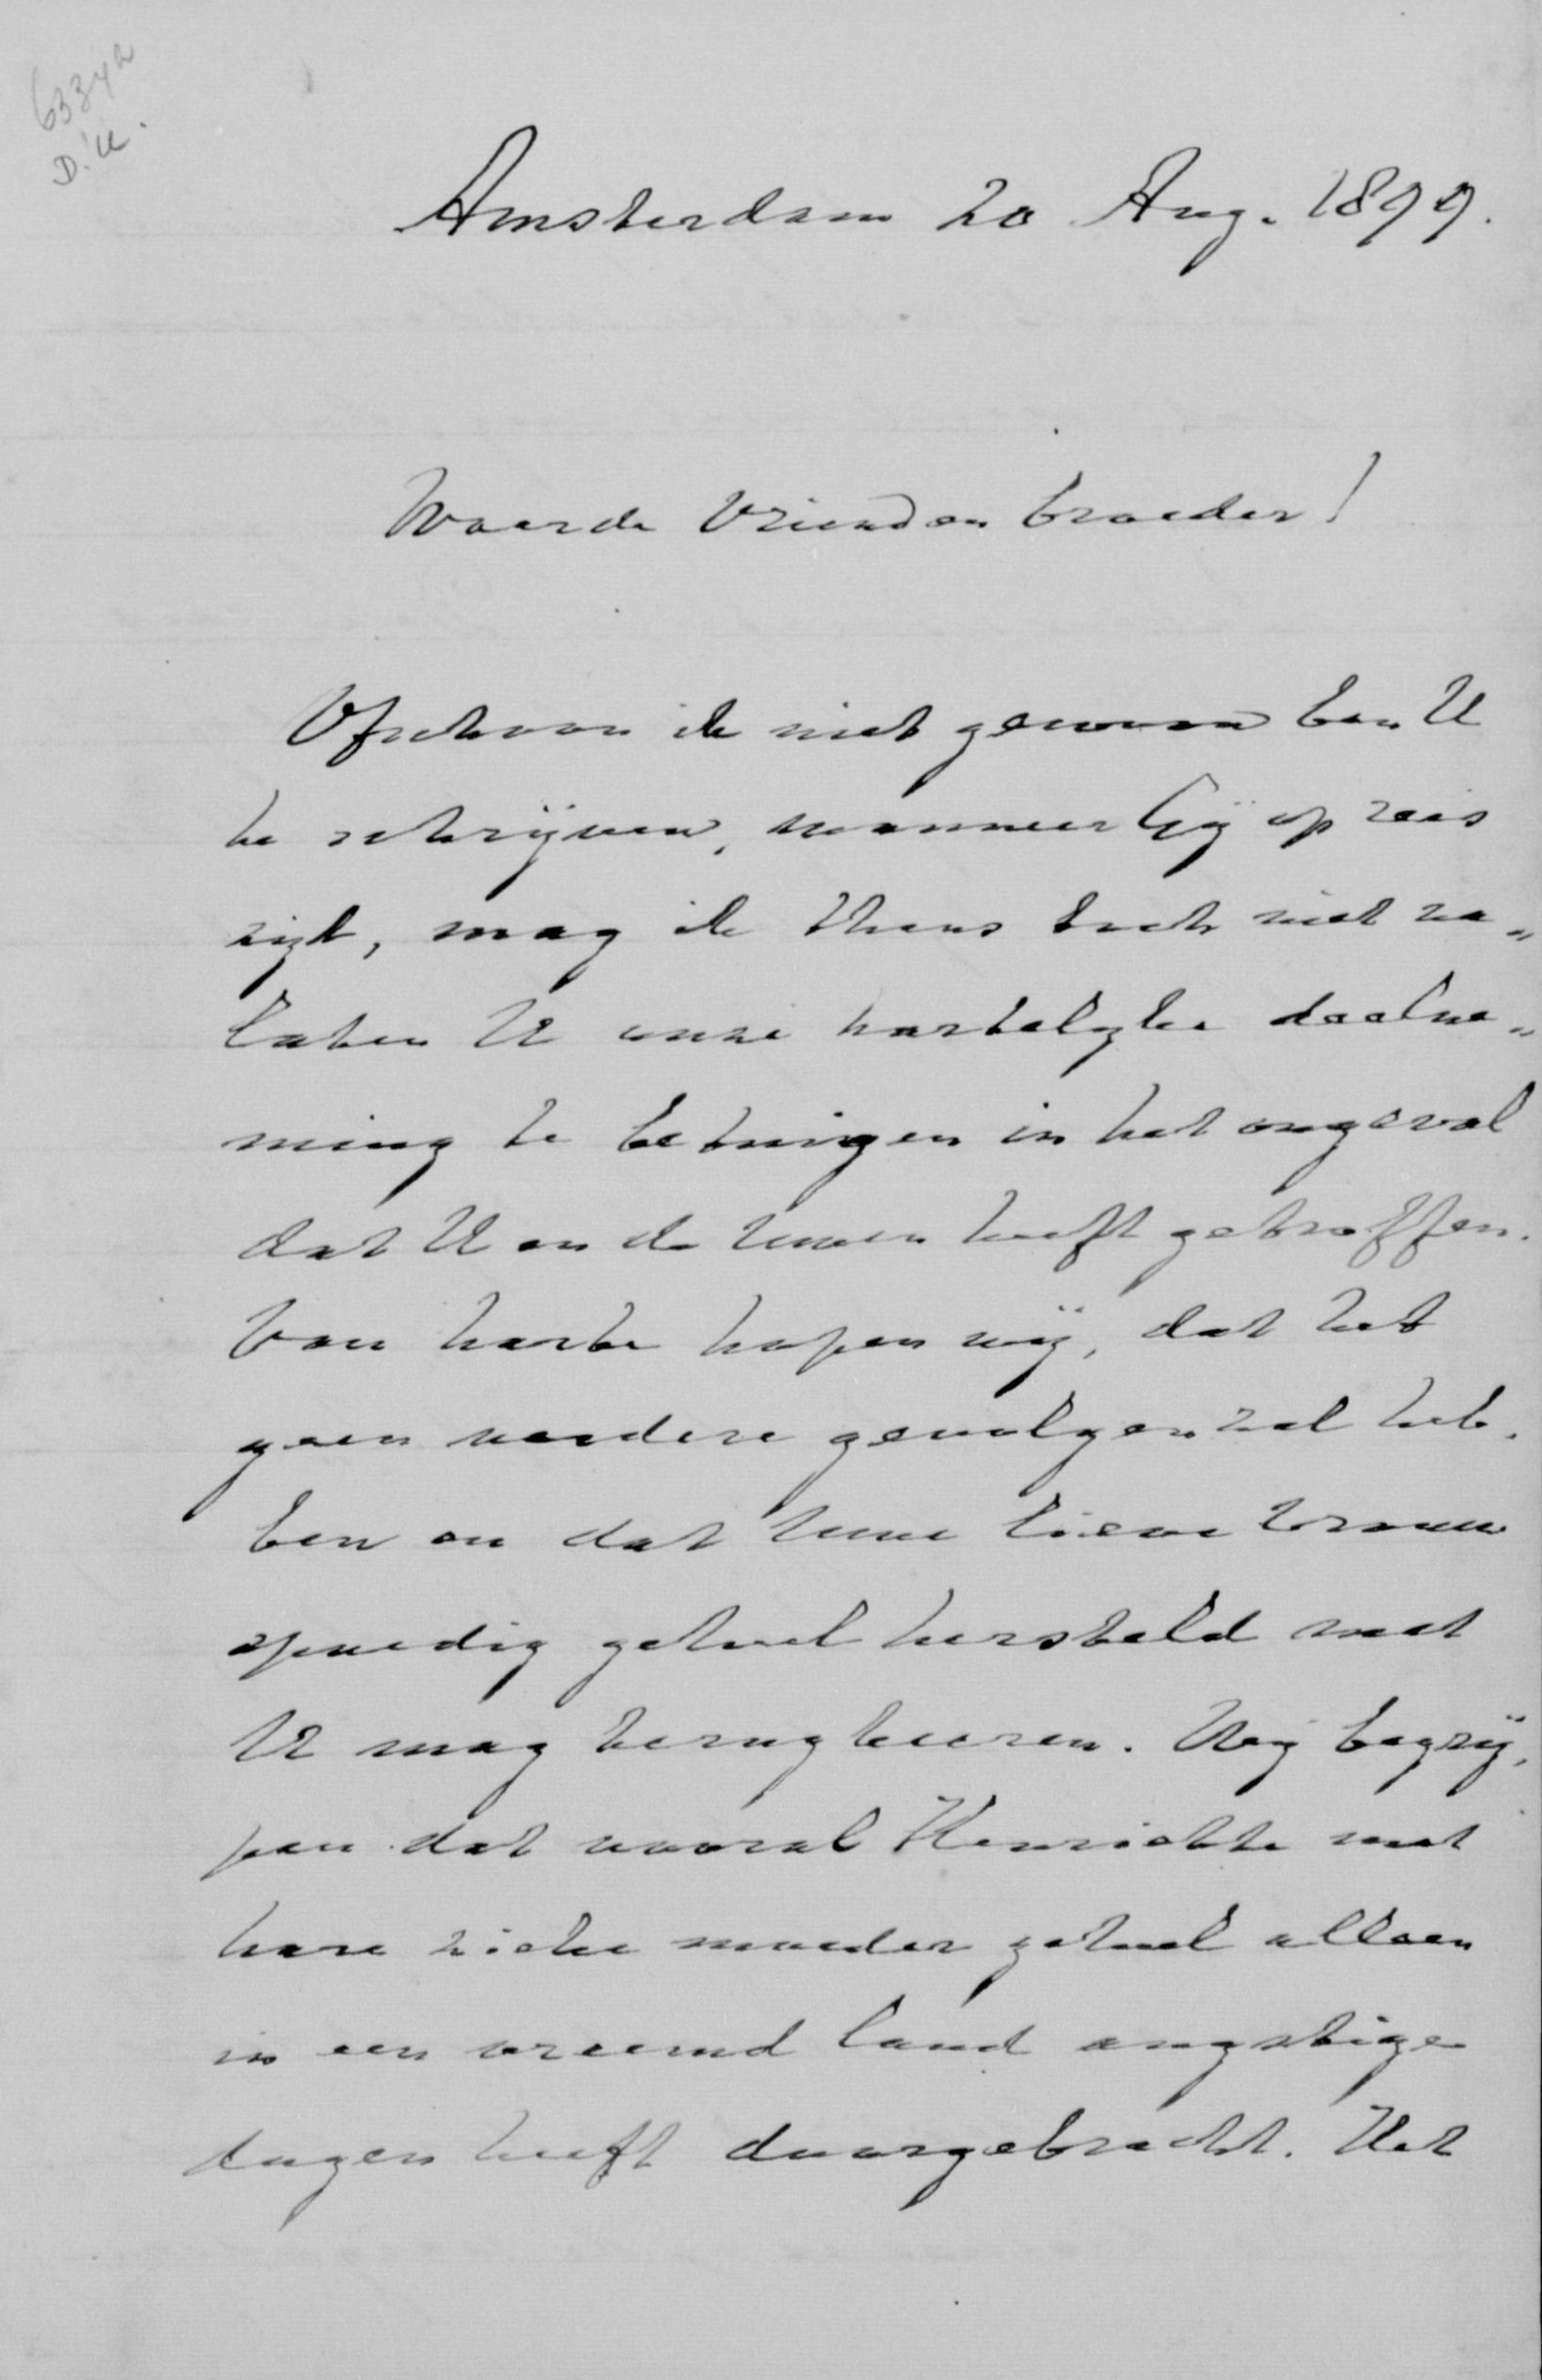 6334a
D.K.
Amsterdam 20 Aug. 1899.
Waarde Vriend en broeder!
Ofschoon ik niet gewoon ben U
te schrijven, wanneer Gij op reis
zijt, mag ik thans toch niet na„
laten U onze hartelijke deelne„
ming te betuigen in het ongeval
dat U en de Uwen heeft getroffen.
Van harte hopen wij, dat het
geen verdere gevolgen zal heb„
ben en dat Uwe lieve vrouw
spoedig geheel hersteld met
U mag terugkeeren. Wij begrij„
pen dat vooral Henriette met
hare zieke moeder geheel alleen
in een vreemd land angstige
dagen heeft doorgebracht. Het